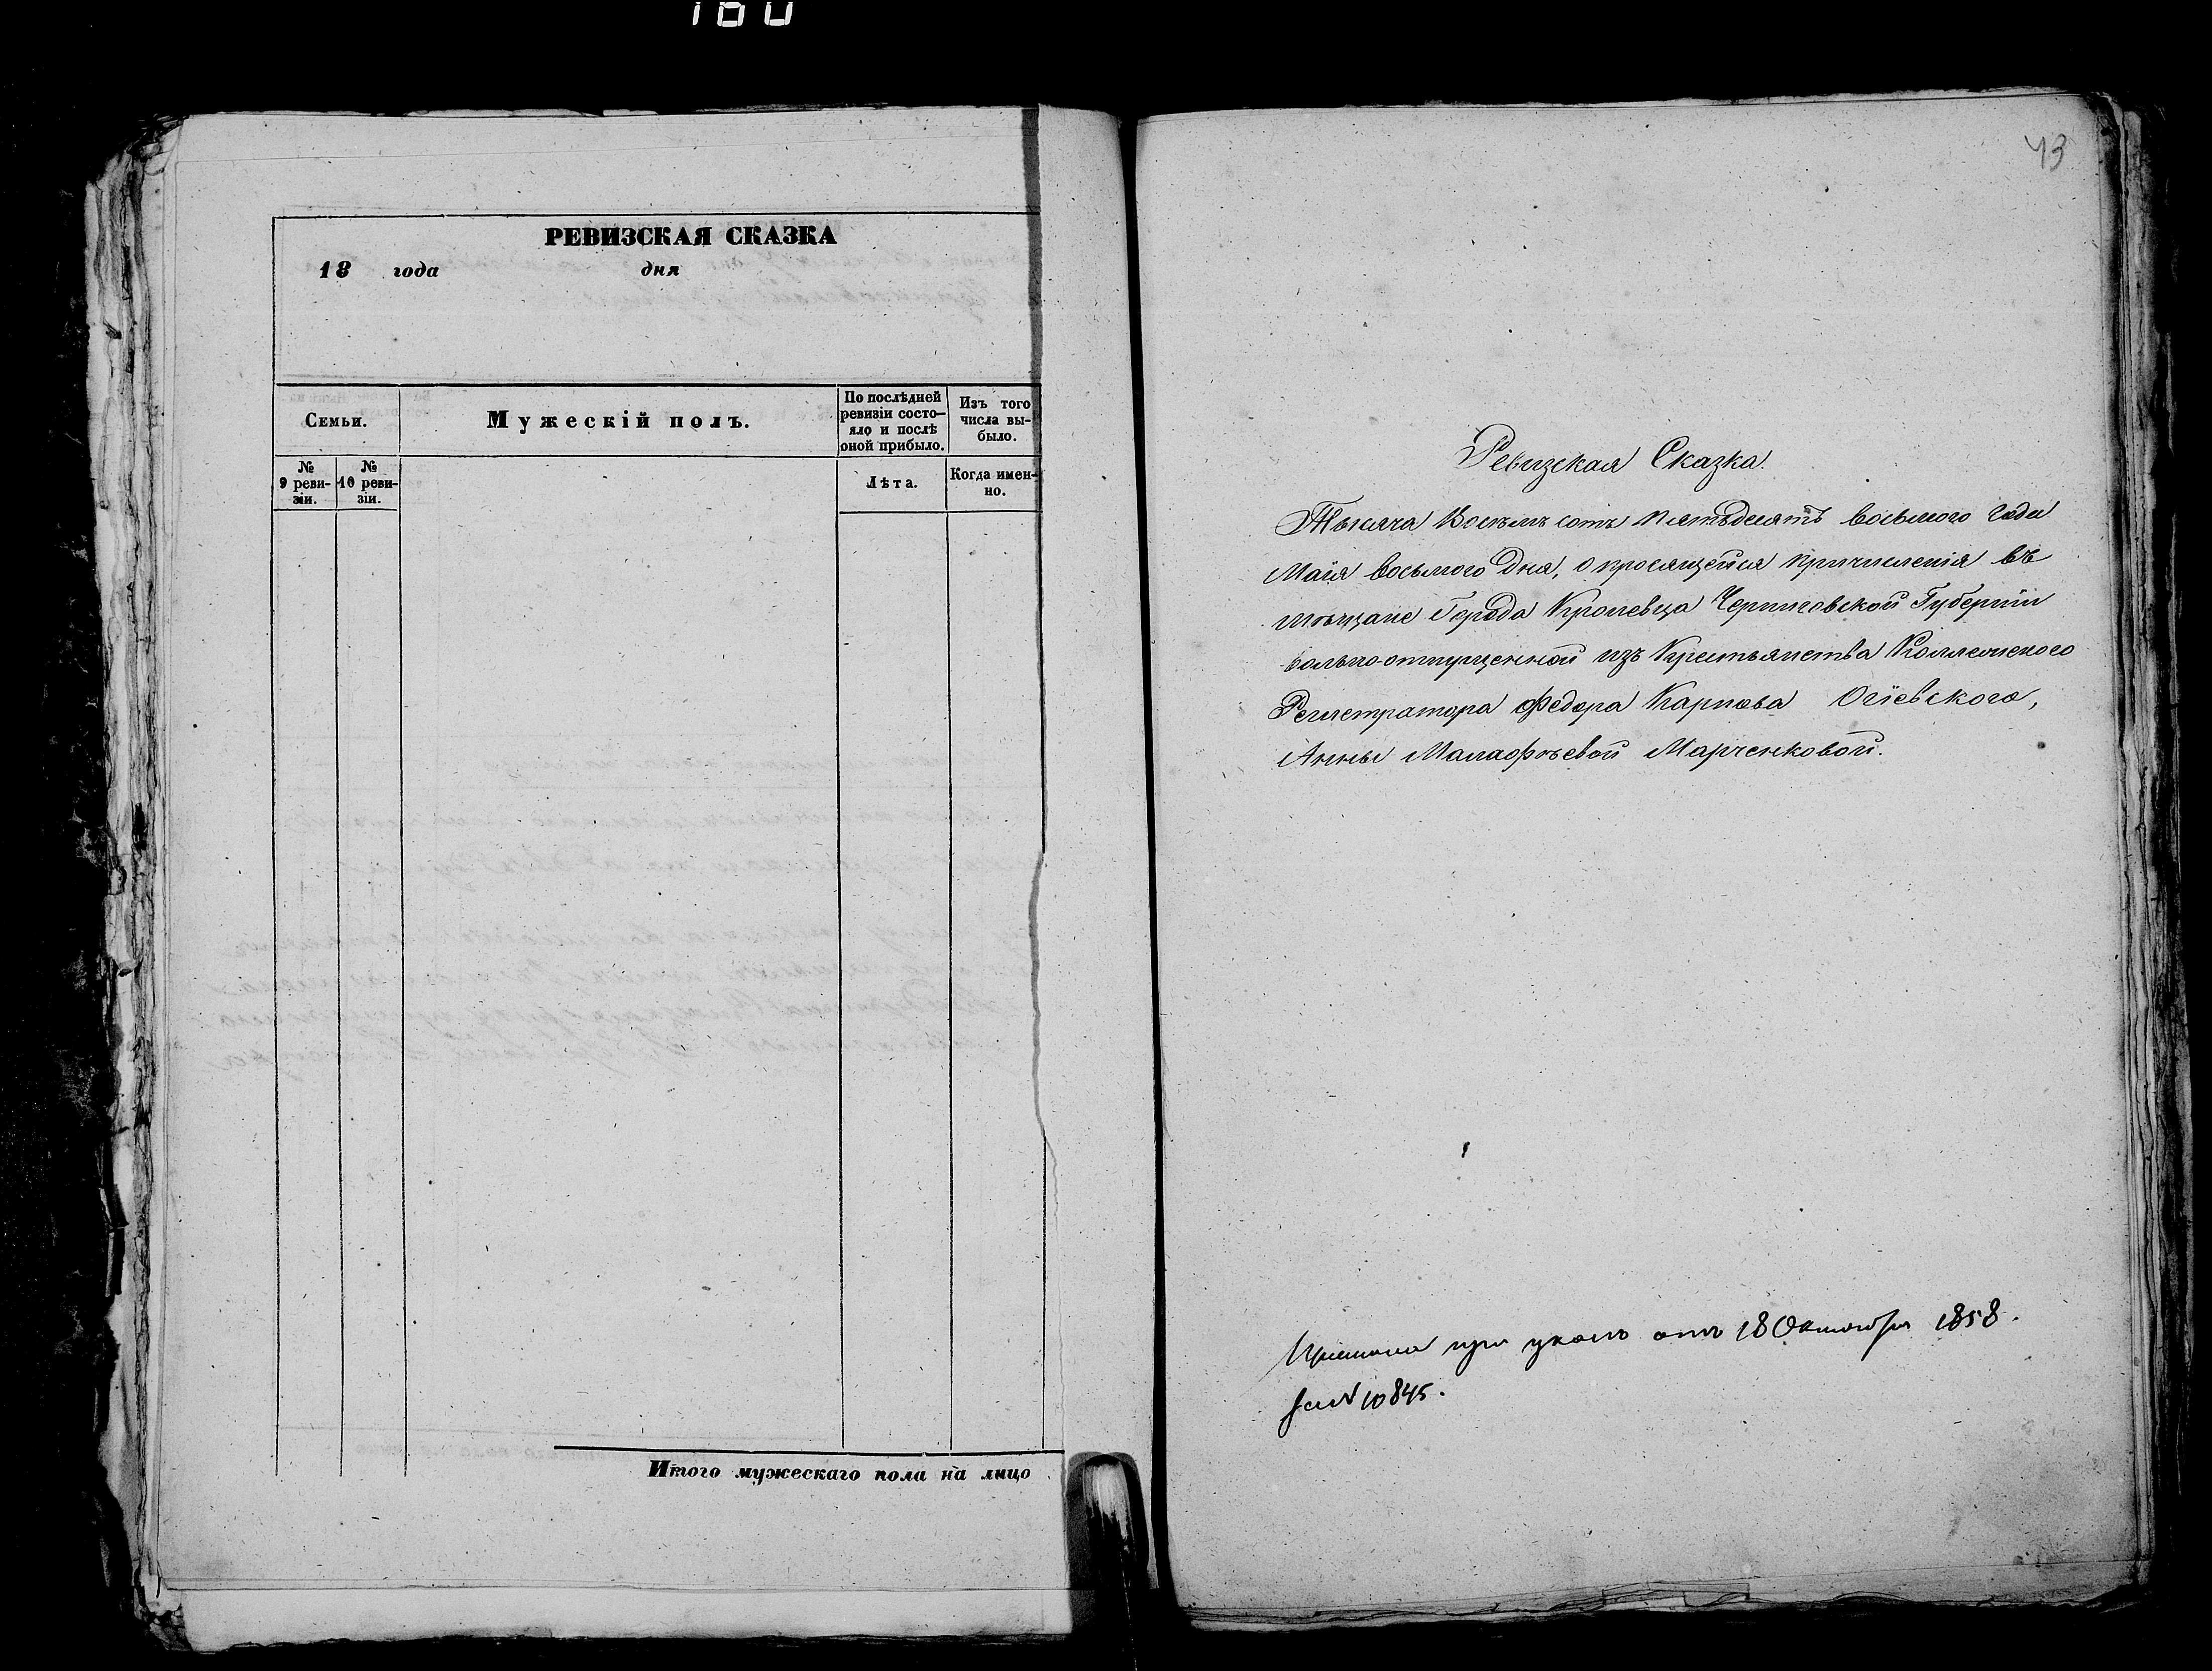 160
РЕВИЗСКАЯ СКАЗКА
18 года дня
Семьи.
Мужескій полъ.
По послѣдней
ревизіи состо-
яло и послѣ
оной прибыло.
Изъ того
числа вы-
было.
№
9 реви-
зіи.
№
10 реви-
зіи.
Лѣта.
Когда имен-
но.
Итого мужескаго пола на лицо
43
Ревизская Сказка.
Тысяча Восемъ сотъ пятьдесятъ восьмого года
Маія восьмого дня, о просящейся причисленія въ
мѣщане Города Кролевца Черниговской Губерніи
вольно-отпущенной изъ Крестьянства Коллежского
Регистратора Федора Карпова Огіевского,
Анны Малафѣевой Марченковой.
при указѣ отъ 18 Октября 1858.
за N 10845.